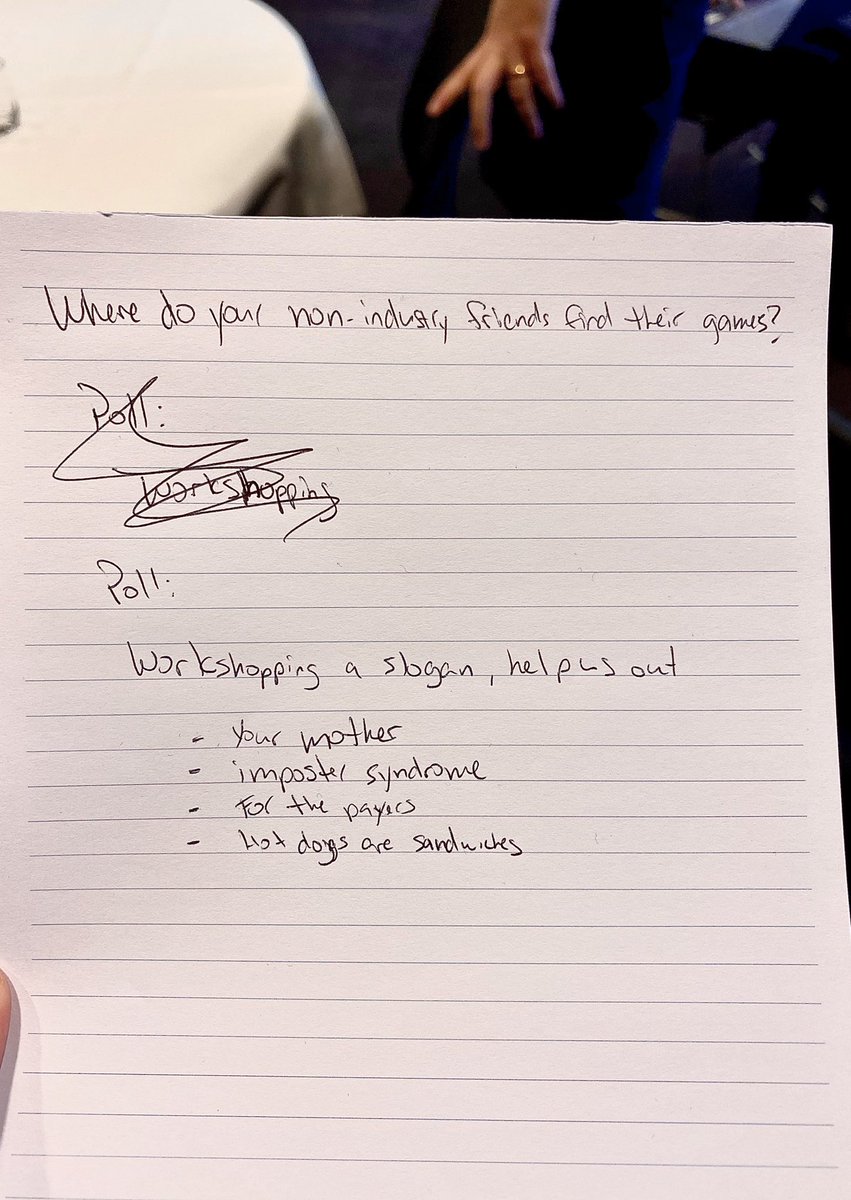 Where do your non-industry friends find their games?
Poll:
Workshopping
Poll:
Workshopping a slogan, help us out
- Your mother
- imposter syndrome
- For the payers
- Hot dogs are sandwiches